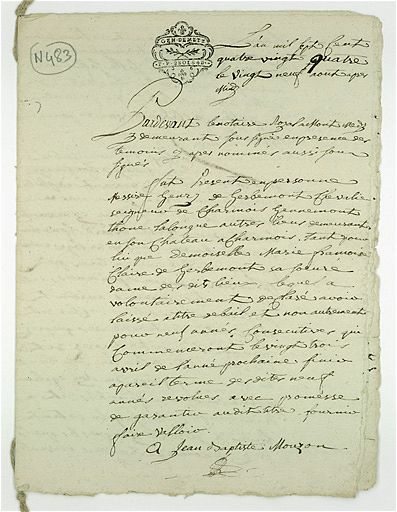 N483
GEN. DE METZ
L'an mil sept cent
quatre vingt quatre
le vingt neuf aout apres
midy
Pardevant le notaire Royal
demeurant sous signé en presence des
temoins cy apres nommés aussi sous
signés
fut present en personne
Messire henry de herbemont chevalier
seigneur de Charmois hannemont
thone lalongue autres lieux demeurant
en son chateau a Charmois, tant pour
lui que demoiselle Marie françoise
Claire de herbemont sa soeure
dame des dits lieux, lequel a
volontairement declaré avoir
laissé a titre de bail et non autrement
pour neuf années consecutives qui
commenceront le vingt trois
avril de l'année prochaine finir
a pareil terme des dites neuf
années revolues avec promesse
de garantir audit titre, fournir
faire valloir
A Jean Baptiste Mouzon